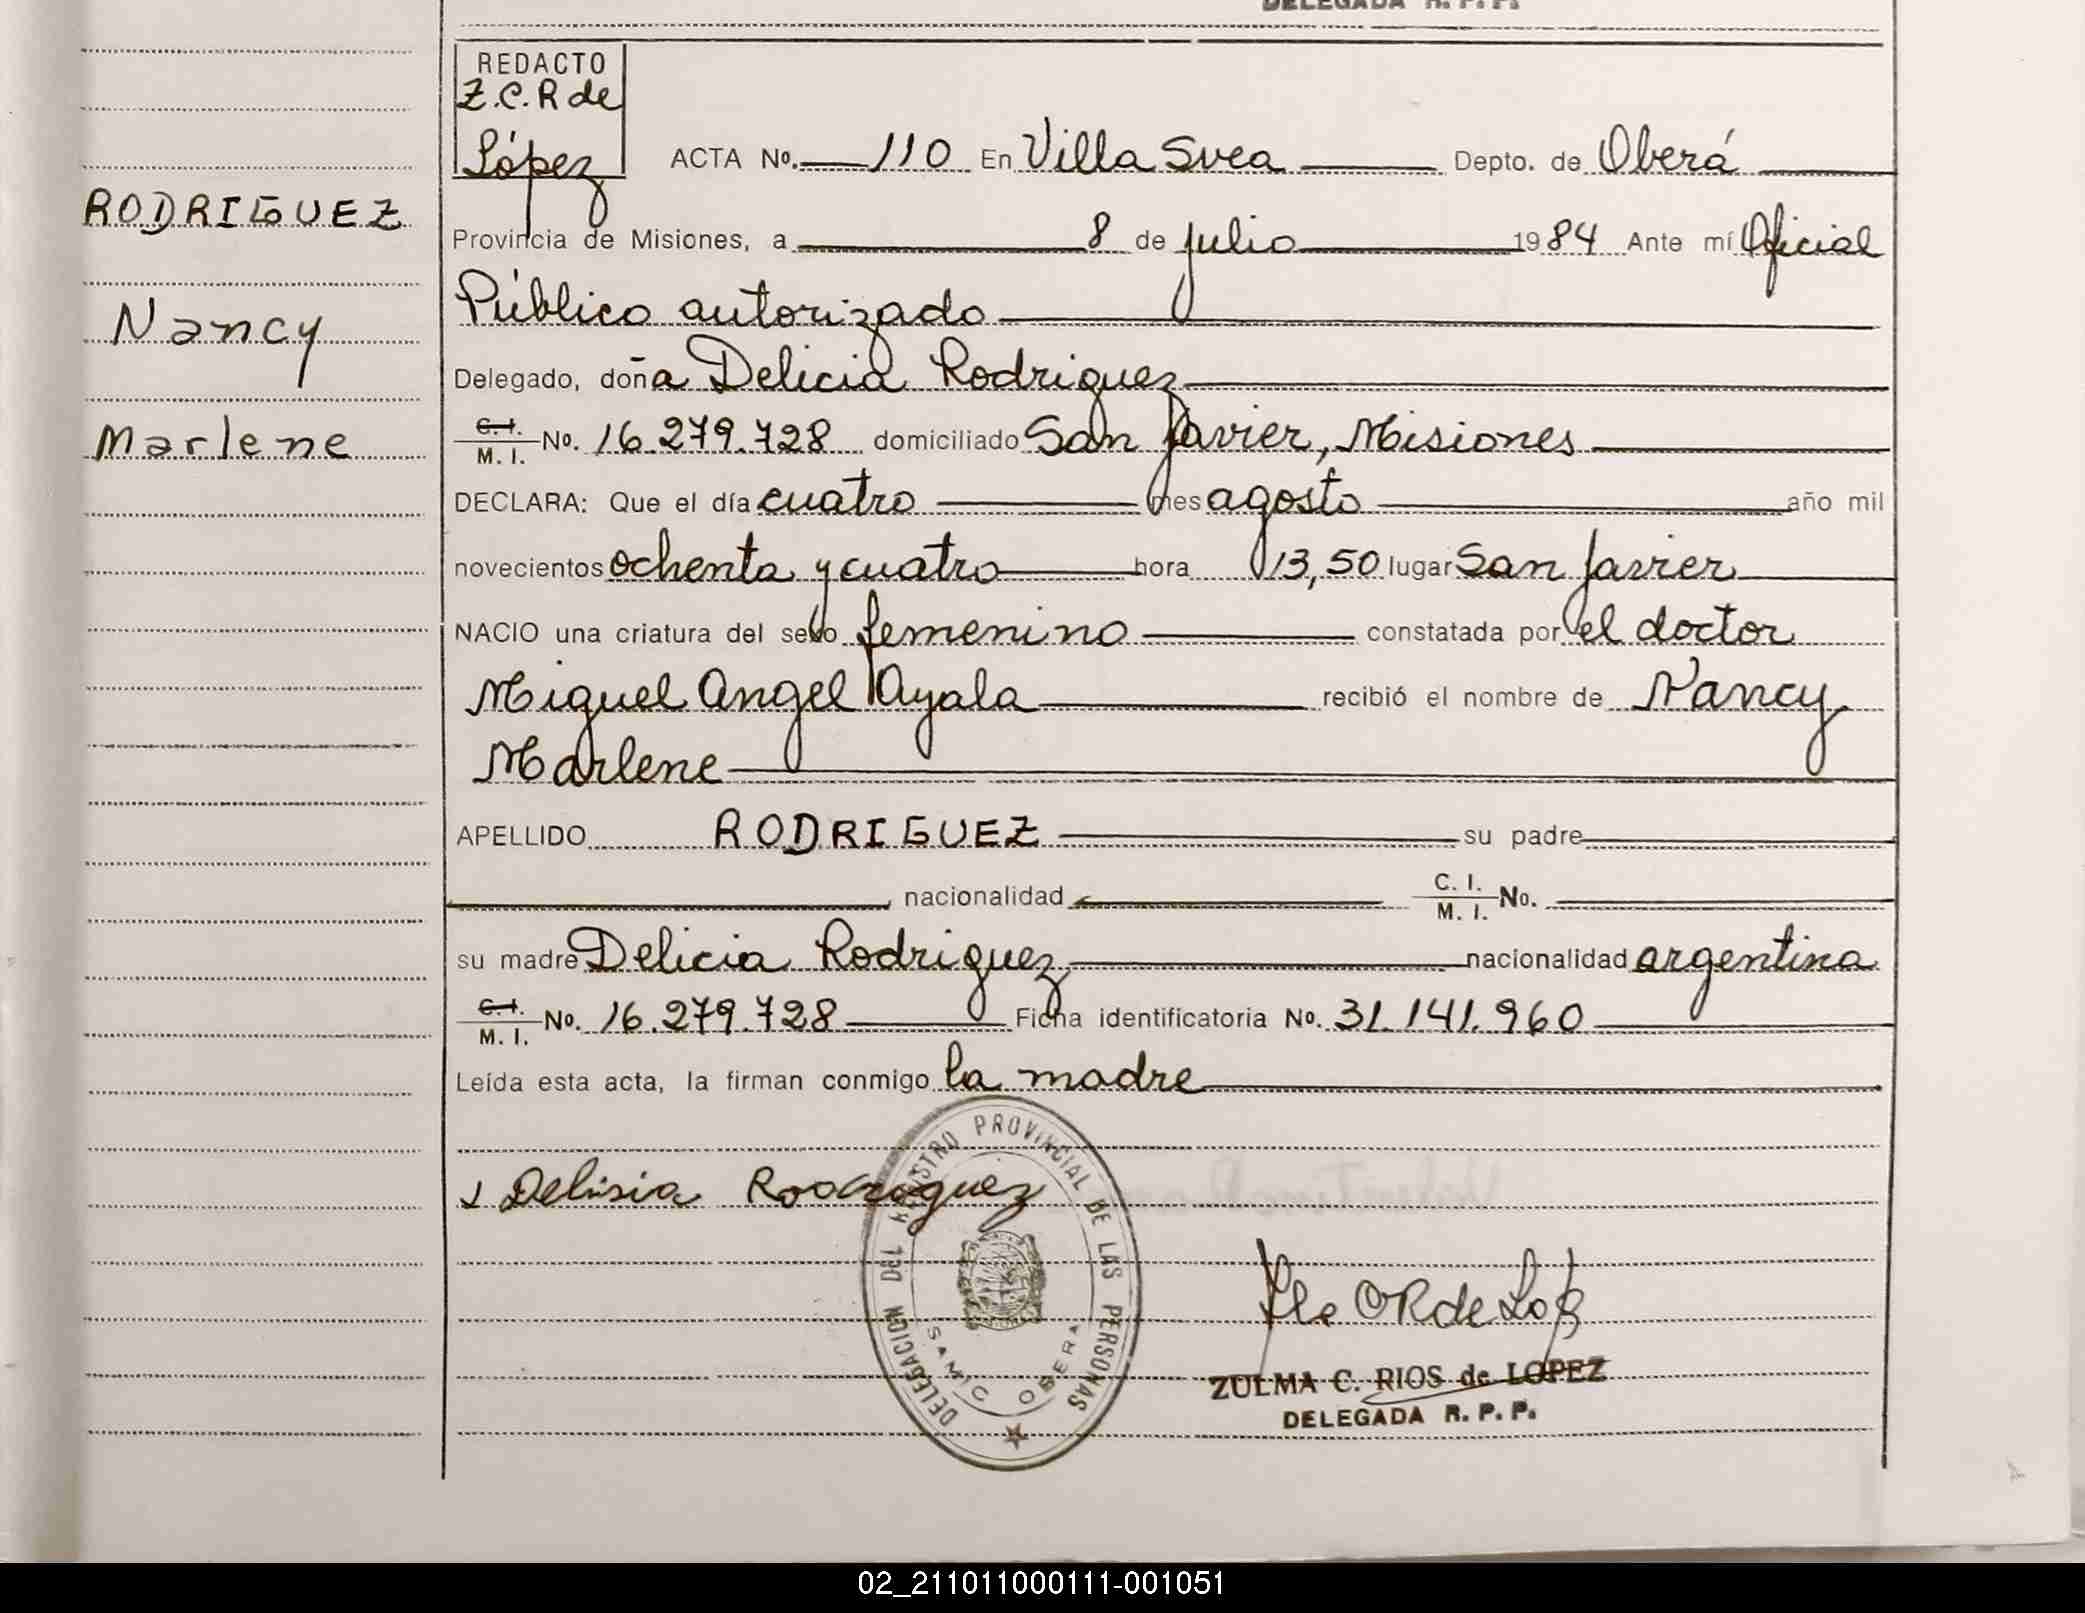 DELEGADA R. P. P.
REDACTO
Z.C.R de
López
ACTA No. 110 En Villa Svea Depto. de Oberá
RODRIGUEZ
Provincia de Misiones, a 8 de julio 1984 Ante mí Oficial
Público autorizado
Nancy
Delegado, doña Delicia Rodriguez
Marlene
C. I.
M. I. No. 16.279.728 domiciliado San Javier, Misiones
DECLARA: Que el día cuatro mes agosto año mil
novecientos ochenta y cuatro hora 13,50 lugar San Javier
NACIO una criatura del sexo femenino constatada por el doctor
Miguel Angel Ayala recibió el nombre de Nancy
Marlene
APELLIDO RODRIGUEZ su padre
nacionalidad C. I.
M. I. No.
su madre Delicia Rodriguez nacionalidad argentina
C. I.
M. I. No. 16.279.728 Ficha identificatoria No. 31.141.960
Leída esta acta, la firman conmigo la madre
Delisia Rodriguez
DELEGACION DEL REGISTRO PROVINCIAL DE LAS PERSONAS
SAMIC OBERA
ZULMA C. RIOS de LOPEZ
DELEGADA R. P. P.
02_211011000111-001051